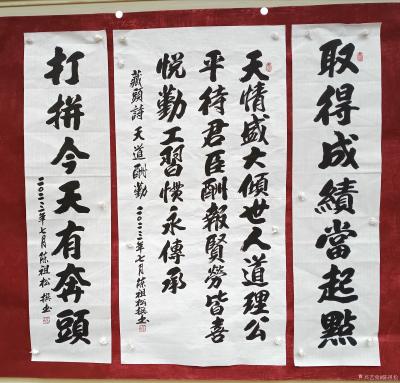 取得成績當起點
天情盛大傾世人道理公
平待君臣酬報賢勞皆喜
悅勤工習慣永傳承
藏頭詩 天道酬勤 二〇二三年七月陳祖松撰書
打拼今天有奔頭
二〇二三年七月陳祖松撰书